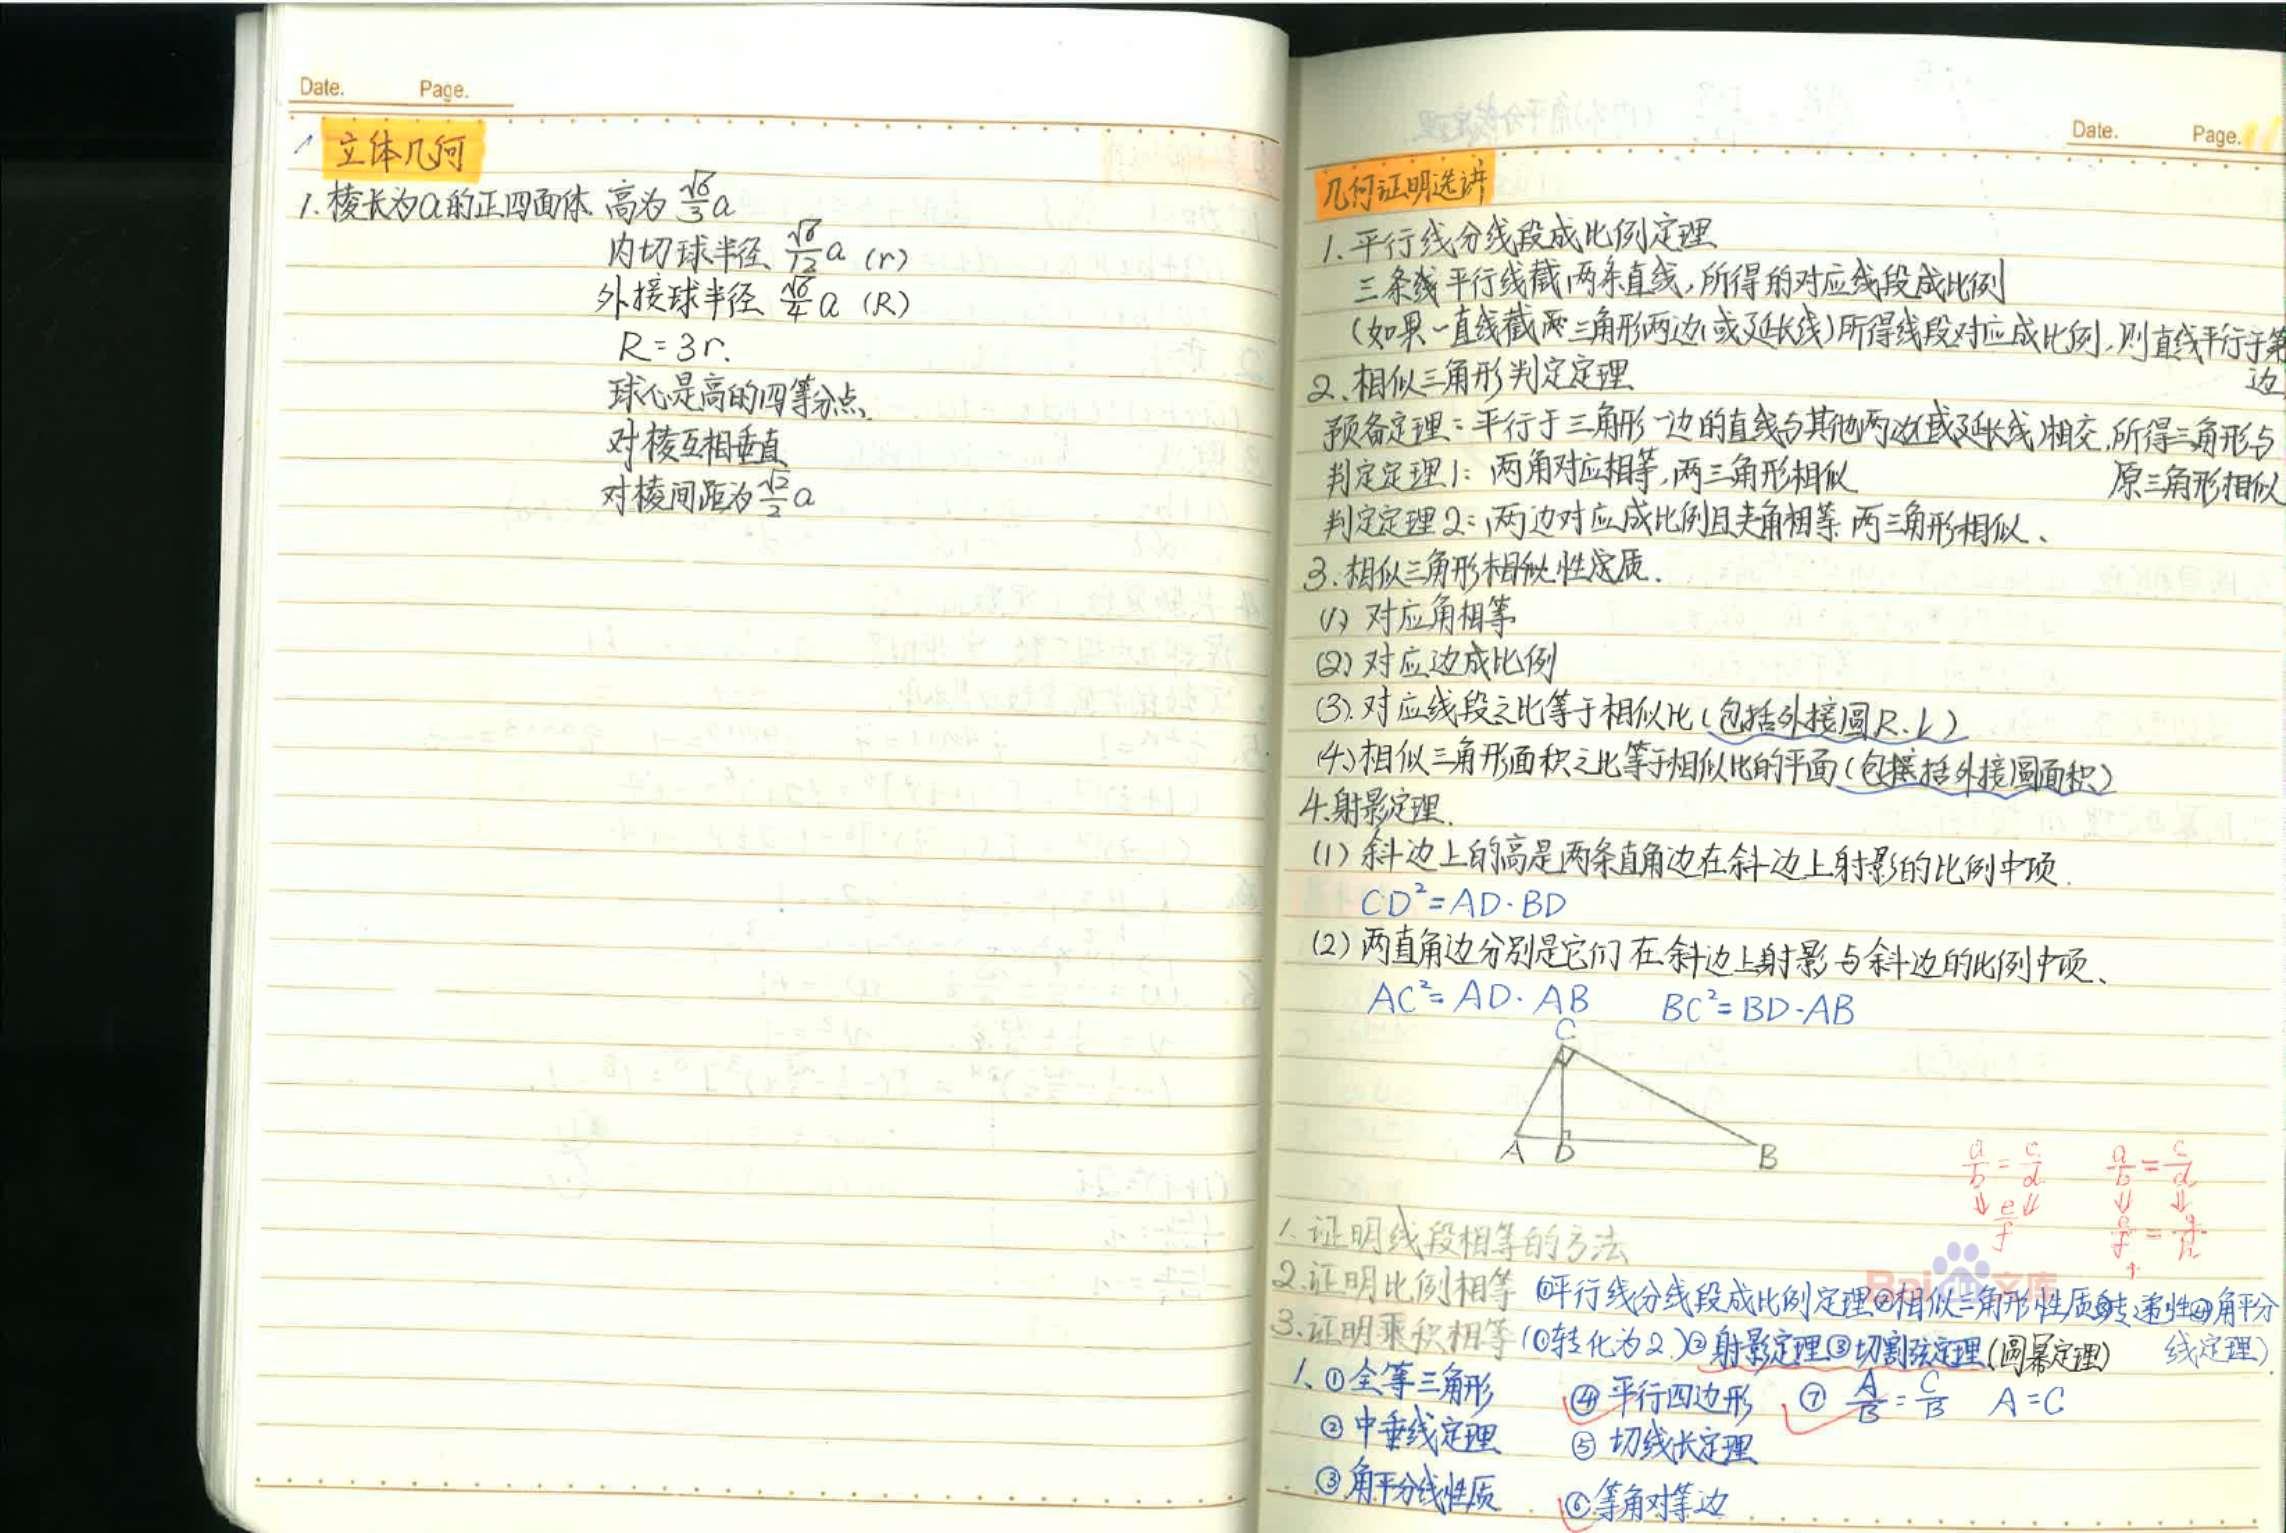 Date. Page.
立体几何
1. 棱长为a的正四面体 高为 √6/3 a
内切球半径 √6/12 a (r)
外接球半径 √6/4 a (R)
R=3r.
球心是高的四等分点.
对棱互相垂直
对棱间距为 √2/2 a
Date. Page.
几何证明选讲
1. 平行线分线段成比例定理
三条线平行线截两条直线,所得的对应线段成比例
(如果一直线截 三角形两边(或延长线)所得线段对应成比例,则直线平行于第
边
2. 相似三角形判定定理
预备定理:平行于三角形一边的直线与其他两边(或延长线)相交,所得三角形与
原三角形相似
判定定理1: 两角对应相等,两三角形相似
判定定理2: 两边对应成比例且夹角相等 两三角形相似、
3. 相似三角形相似性 质.
(1) 对应角相等
(2) 对应边成比例
(3). 对应线段之比等于相似比(包括外接圆R.L)
(4) 相似三角形面积之比等于相似比的平面(包括外接圆面积)
4.射影定理.
(1) 斜边上的高是两条直角边在斜边上射影的比例中项.
CD²=AD·BD
(2) 两直角边分别是它们在斜边上射影与斜边的比例中项、
AC²=AD·AB BC²=BD·AB
C
A D B
a/b = c/d a/b = c/d
⇓ ⇓ ⇓ ⇓
e/f e/f = g/h
1. 证明线段相等的方法
2. 证明比例相等 ①平行线分线段成比例定理②相似三角形性质③传递性④角平分
线定理)
3. 证明乘积相等(①转化为2.)②射影定理③切割弦定理(圆幂定理)
1、①全等三角形 ④平行四边形 ⑦ A/B = C/B A=C
②中垂线定理 ⑤切线长定理
③角平分线性质 ⑥等角对等边
Bai 文库